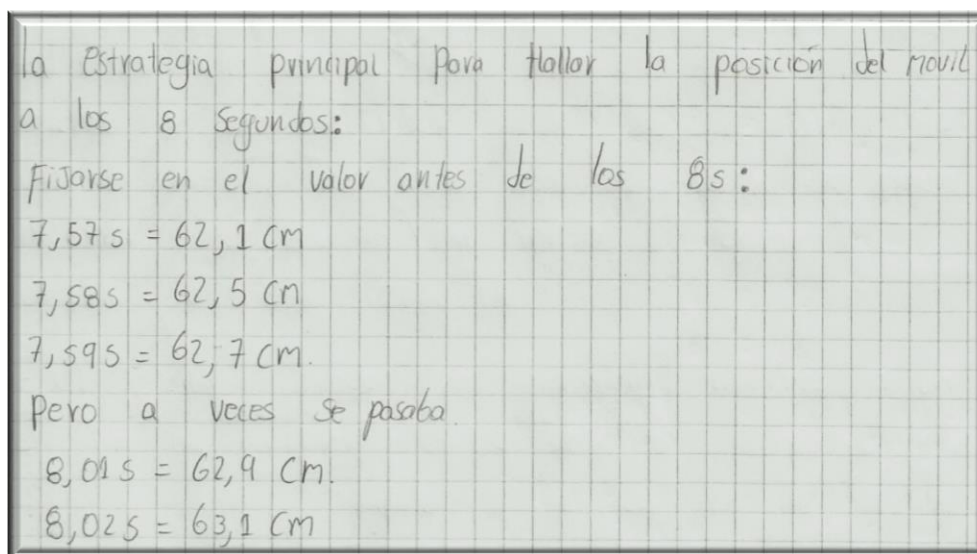 la estrategia principal Para Hallar la posición del movil
a los 8 segundos:
Fijarse en el valor antes de los 8s:
7,57 s = 62,1 cm
7,58s = 62,5 cm
7,59s = 62,7 cm.
Pero a veces se pasaba.
8,01s = 62,9 cm.
8,02s = 63,1 cm